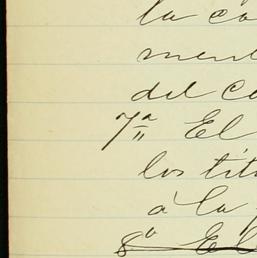 la co
ment
del co
7ª El
los tít
á la
8º El